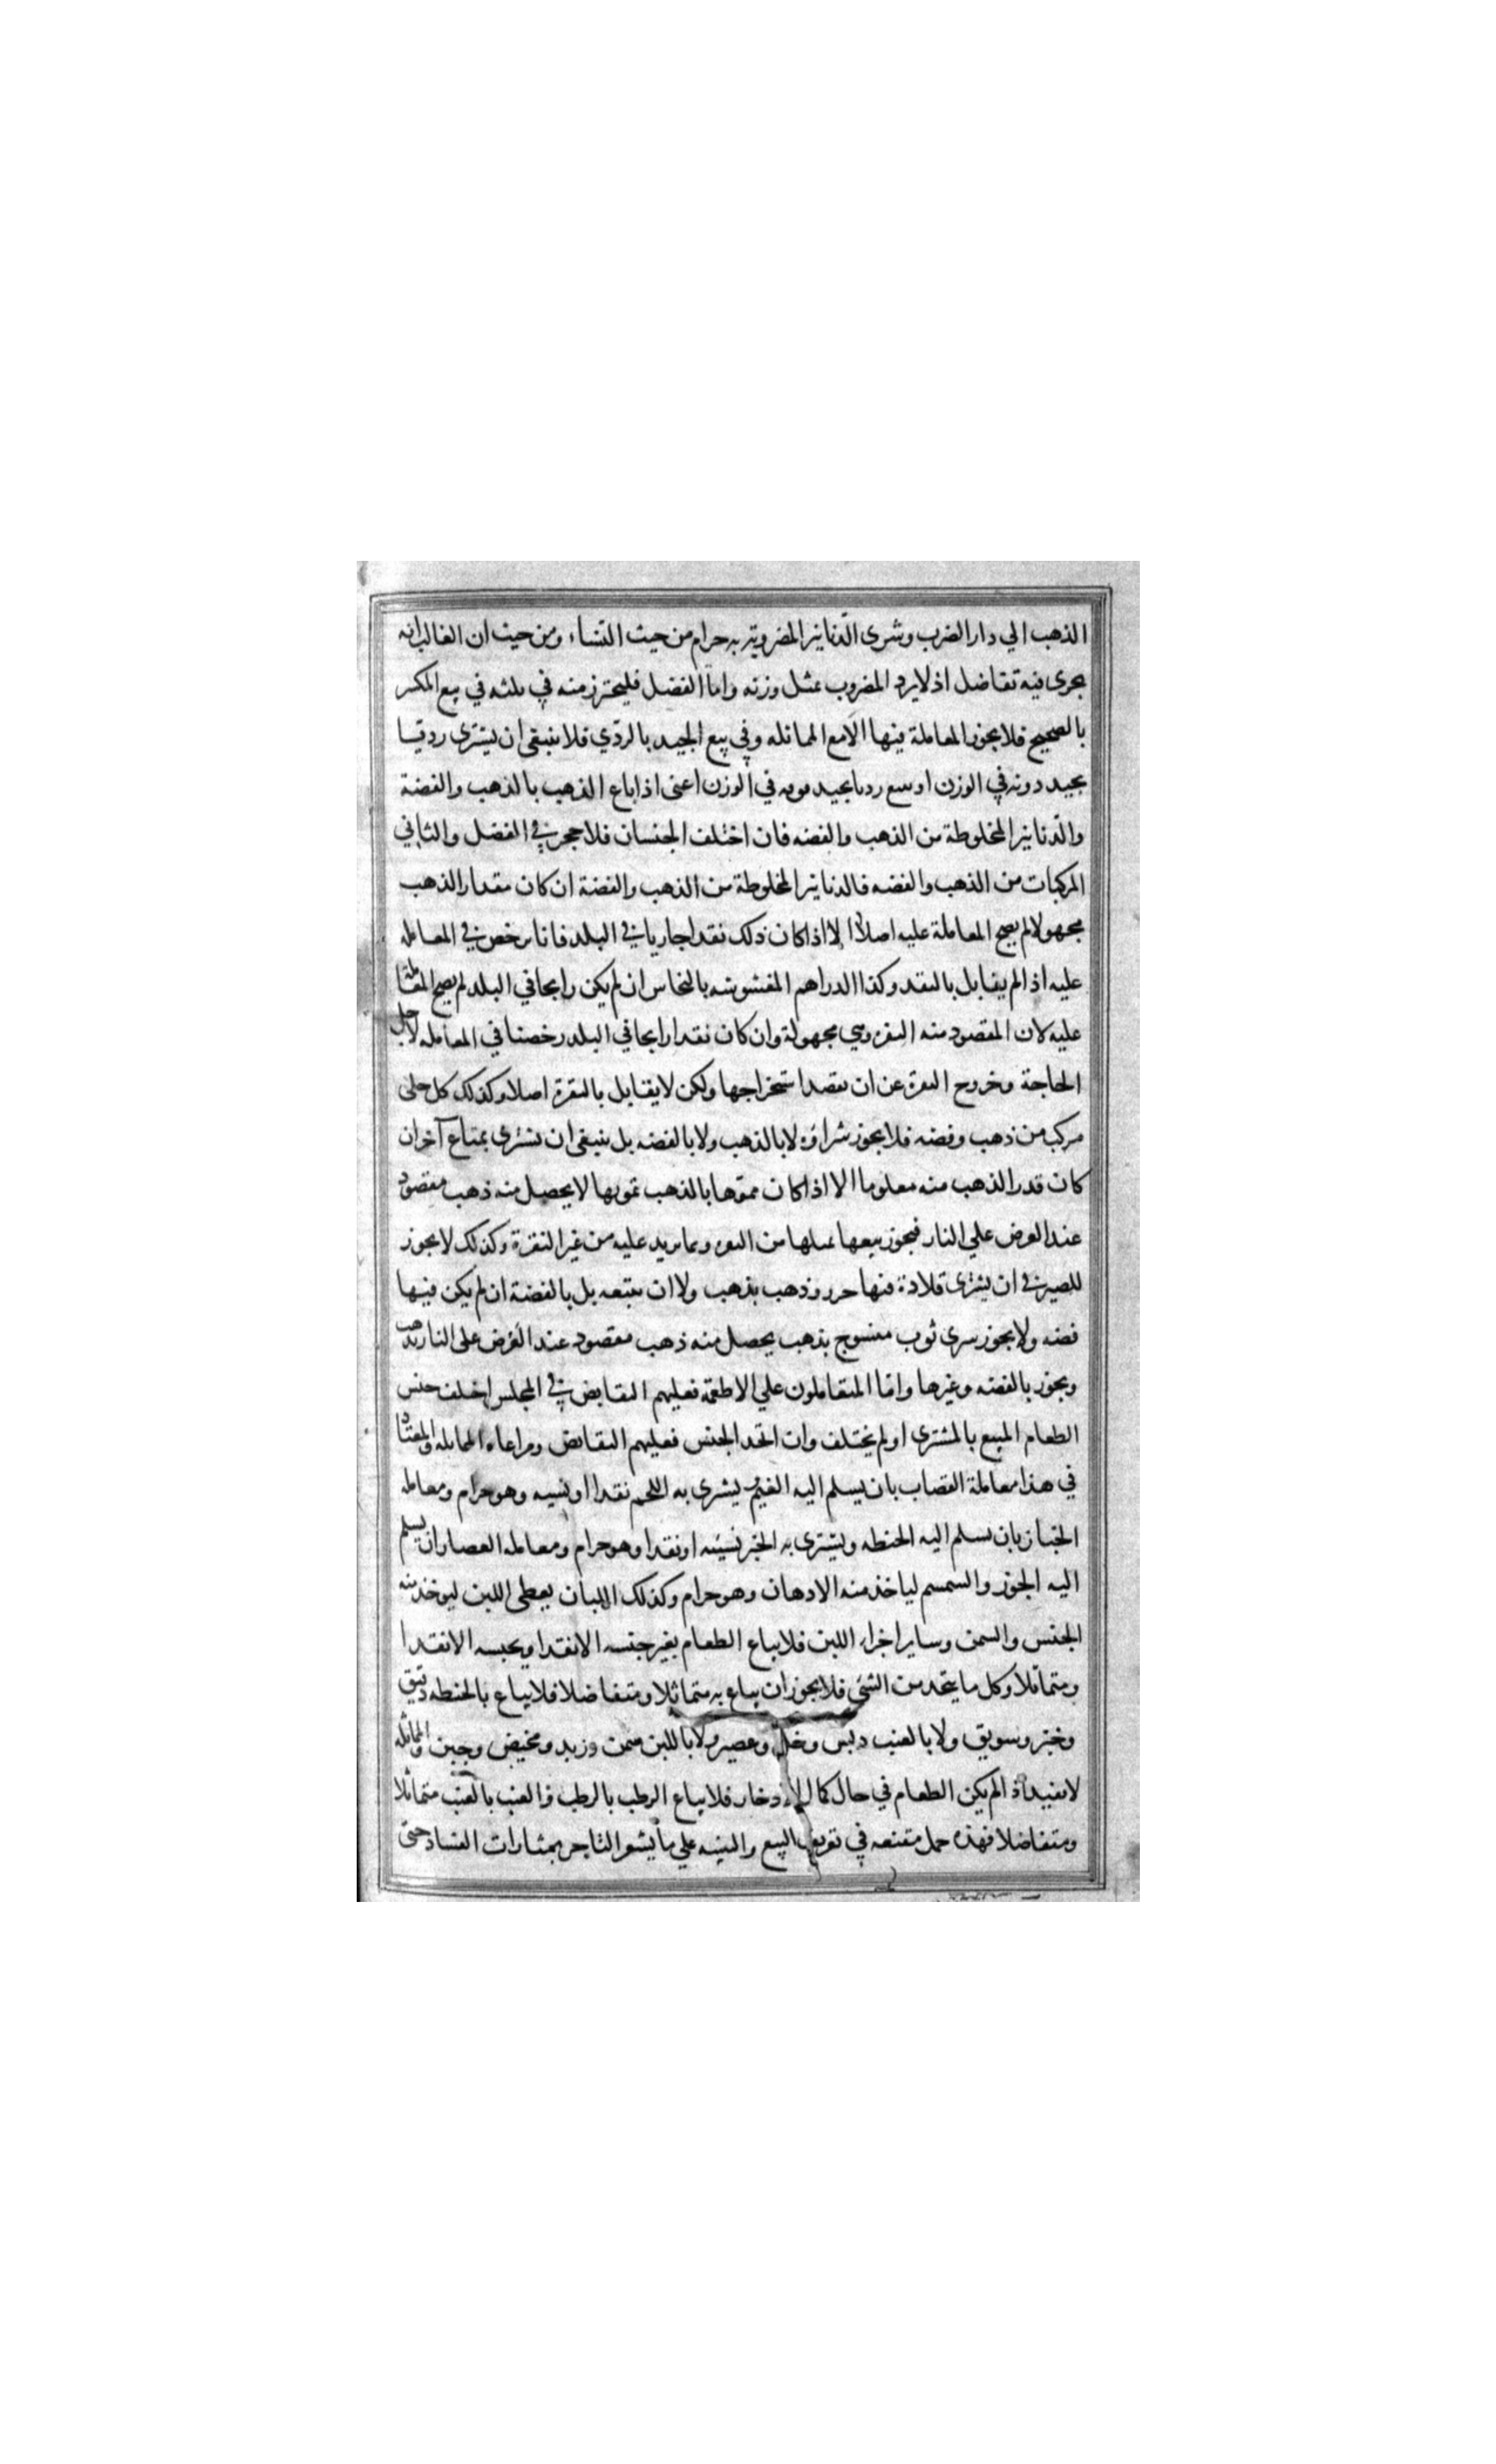 الذهب الي دار الضرب وشرى الدنانير المضروبة به حرام من حيث النساء ومن حيث ان الغالب انه
يجرى فيه تفاضل اذ لا يرد المضروب بمثل وزنه واما الفضل فليحترز منه في ثلثه في بيع المكسر
بالصحيح فلا يجوز المعاملة فيها الا مع المماثله وفي بيع الجيد بالردي فلا ينبغى ان يشترى رديا
بجيد دونه في الوزن او يبيع رديا بجيد فوقه في الوزن اعنى اذا باع الذهب بالذهب والفضة
والدنانير المخلوطة من الذهب والفضه فان اختلف الجنسان فلا حجر في الفضل والثاني
المركبات من الذهب والفضه فالدنانير المخلوطة من الذهب والفضة ان كان مقدار الذهب
مجهولا لم يصح المعاملة عليه اصلا الا اذا كان ذلك نقدا جاريا في البلد فانا نرخص في المعامله
عليه اذا لم يقابل بالنقد وكذا الدراهم المغشوشه بالنحاس ان لم يكن رايجا في البلد لم يصح المعاملة
عليه لان المقصود منه النقره وهي مجهولة وان كان نقدا رايجا في البلد رخصنا في المعامله لاجل
الحاجة وخروج النقرة عن ان يقصد استخراجها ولكن لا يقابل بالنقرة اصلا وكذلك كل حلى
مركب من ذهب وفضه فلا يجوز شراؤه لا بالذهب ولا بالفضه بل ينبغى ان يشترى بمتاع آخر ان
كان قدر الذهب منه معلوما الا اذا كان مموها بالذهب تمويها لا يحصل منه ذهب مقصود
عند العرض علي النار فيجوز بيعها بمثلها من النقره وبما يريد عليه من غير النقرة وكذلك لا يجوز
للصيرفي ان يشترى قلادة فيها خرز وذهب بذهب ولا ان يبيعه بل بالفضة ان لم يكن فيها
فضه ولا يجوز شرى ثوب منسوج بذهب يحصل منه ذهب مقصود عند العرض على النار بذهب
ويجوز بالفضه وغيرها واما المتعاملون علي الاطعمة فعليهم التقابض في المجلس اختلف جنس
الطعام المبيع بالمشترى او لم يختلف وان اتحد الجنس فعليهم التقابض ومراعاه المماثله والمعتاد
في هذا معاملة القصاب بان يسلم اليه الغنم يشترى به اللحم نقدا او نسيه وهو حرام ومعامله
الخباز بان يسلم اليه الحنطه ويشترى به الخبز نسيئه او نقدا وهو حرام ومعامله العصار ان يسلم
اليه الجوز والسمسم لياخذ منه الادهان وهو حرام وكذلك اللبان يعطى اللبن ليوخذ منه
الجنس والسمن وساير اجزاء اللبن فلا يباع الطعام بغير جنسه الا نقدا وبجنسه الا نقدا
ومتماثلا وكل ما يتخذ من الشئى فلا يجوز ان يباع به متماثلا ومتفاضلا فلا يباع بالحنطه دقيق
وخبز وسويق ولا بالعنب دبس وخل وعصير ولا باللبن سمن وزبد ومخيض وجبن والمماثله
لا تفيد اذا لم يكن الطعام في حال كمال الادخار فلا يباع الرطب بالرطب والعنب بالعنب متماثلا
ومتفاضلا فهذه جمل مقنعه في تعريف البيع والتنبيه علي ما يشعر التاجر بمثارات الفساد حتى